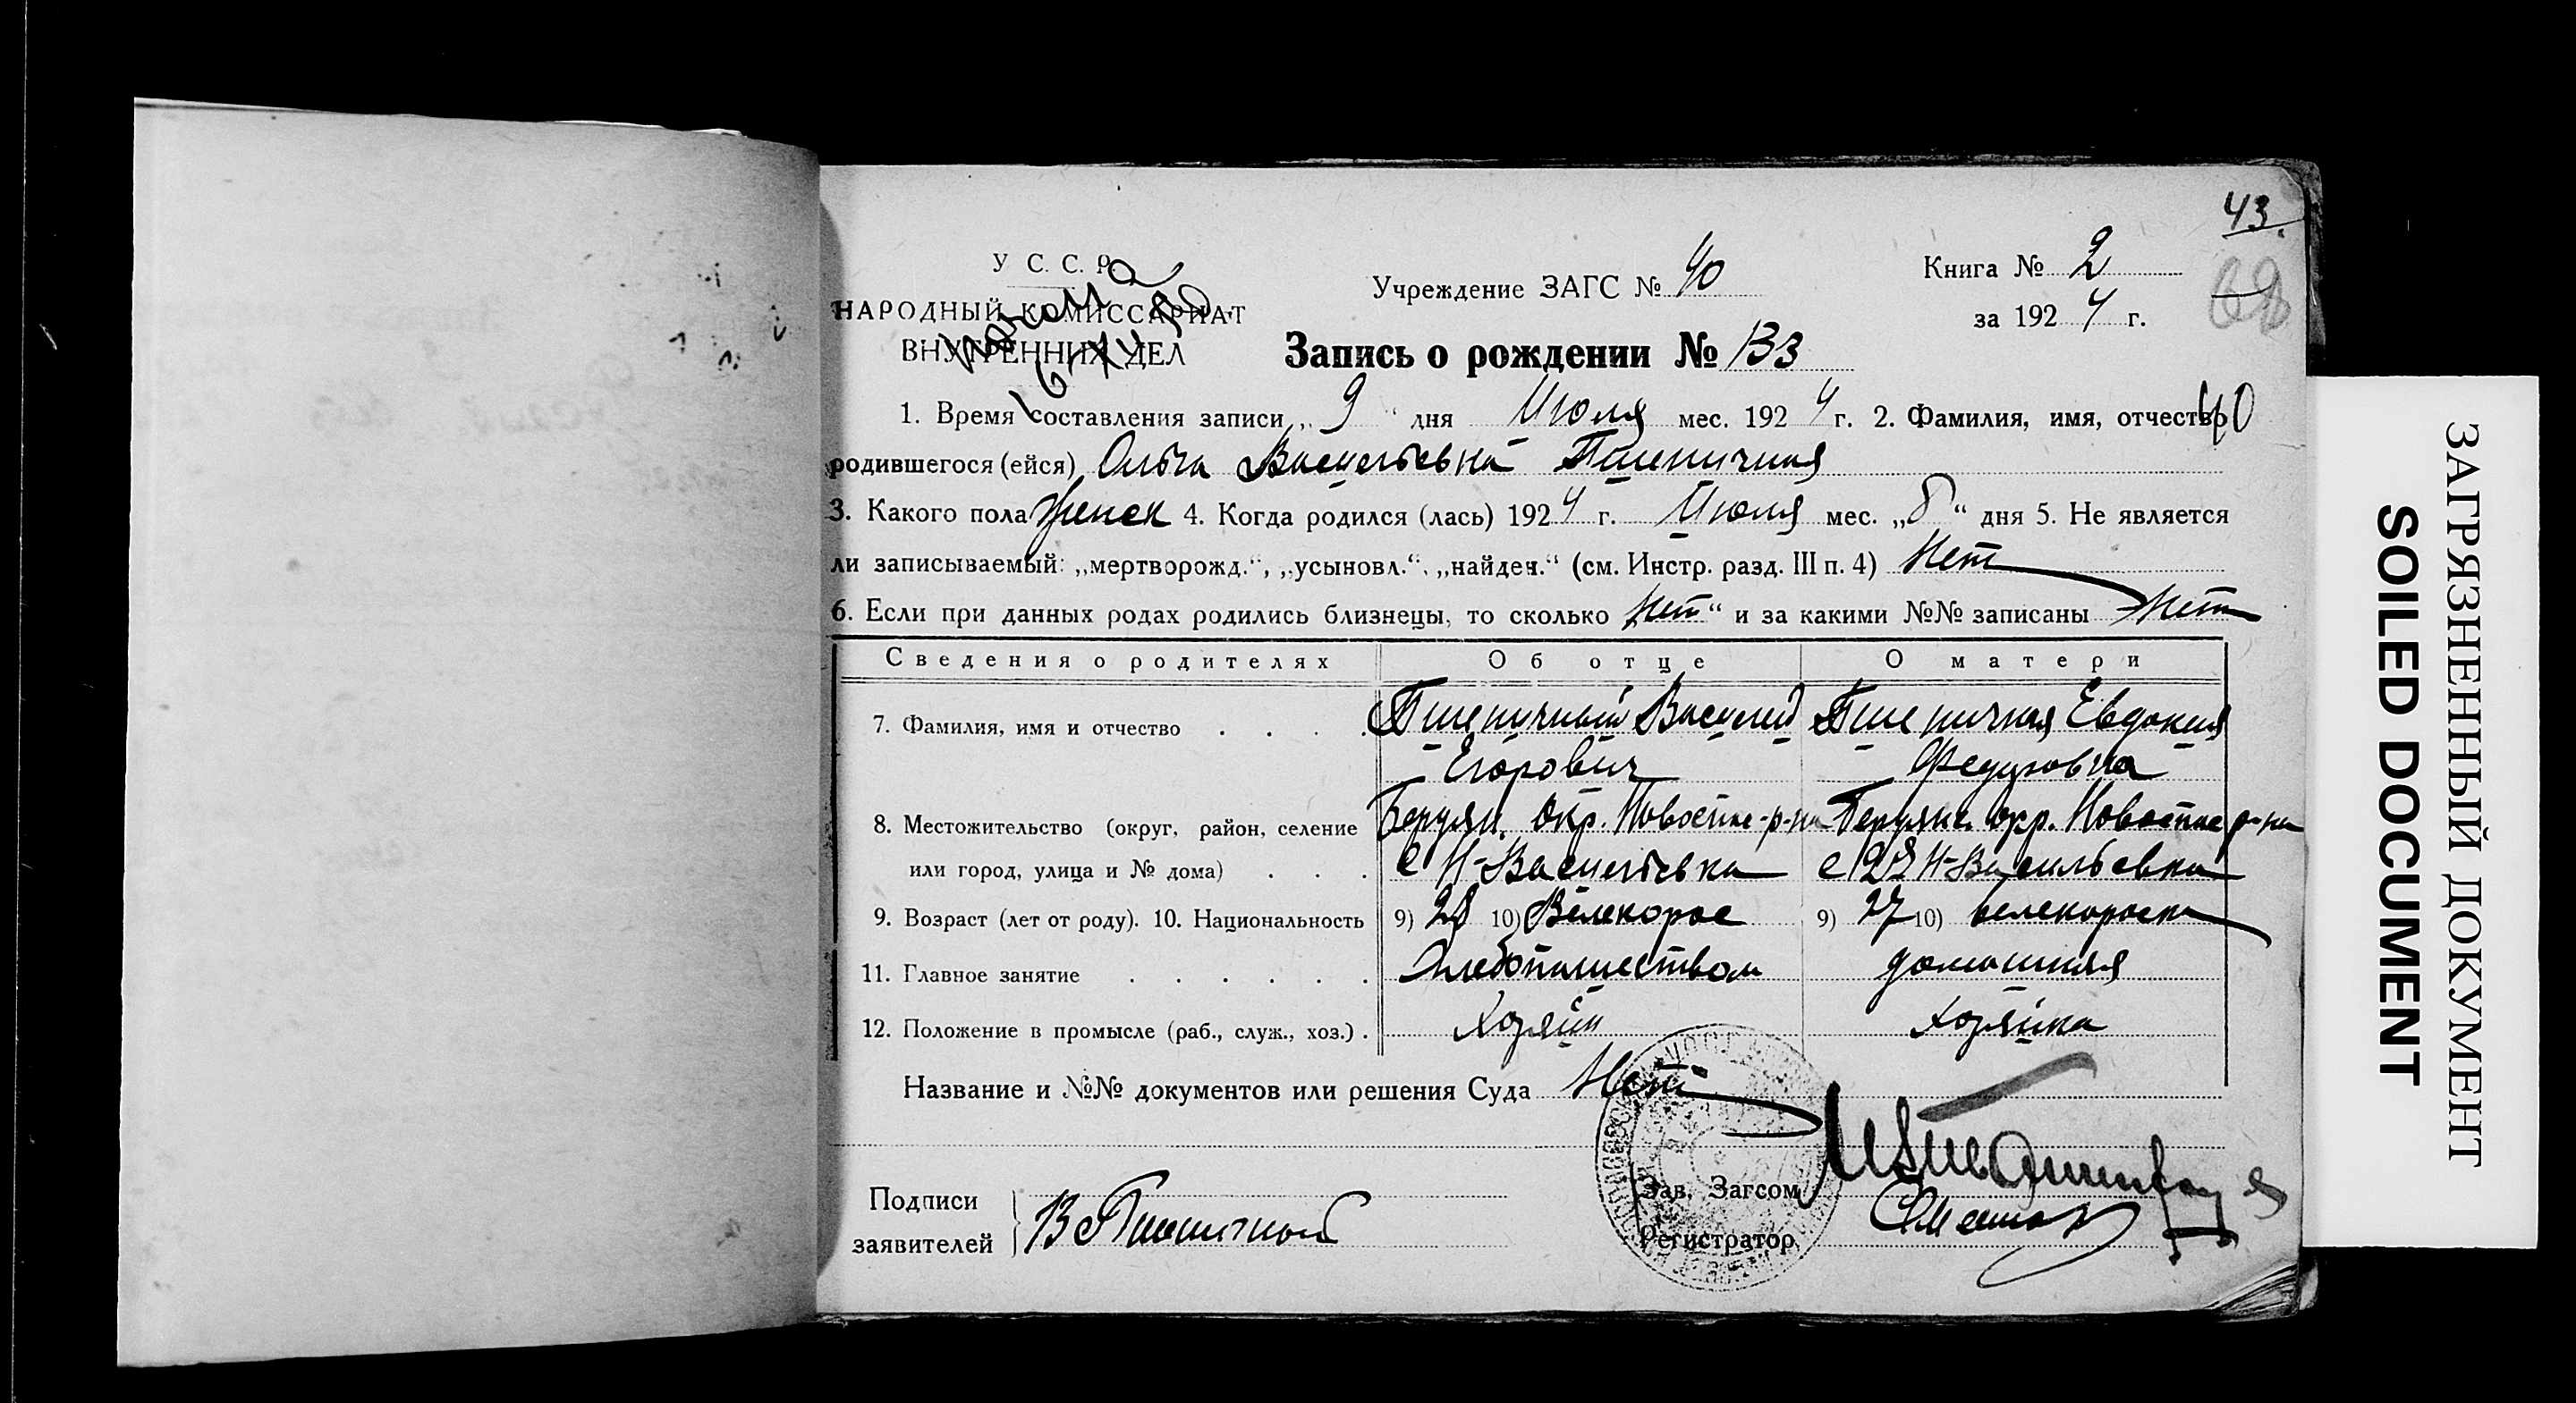 43.
У С. С. Р.
НАРОДНЫЙ КОМИССАРИАТ
ВНУТРЕННИХ ДЕЛ
Учреждение ЗАГС № 40
Книга № 2
за 1924 г.
68
Запись о рождении № 133
1. Время составления записи „ 9 “ дня Июля мес. 1924 г. 2. Фамилия, имя, отчество
40
родившегося (ейся) Ольга Васильевна Пшеничная
3. Какого пола женск 4. Когда родился (лась) 1924 г. Июля мес. „8“ дня 5. Не является
ли записываемый: „мертворожд.“, „усыновл.“, „найден.“ (см. Инстр. разд. III п. 4) Нет
6. Если при данных родах родились близнецы, то сколько Нет “ и за какими №№ записаны Нет
Сведения о родителях Об отце О матери
7. Фамилия, имя и отчество . . . . Пшеничный Василий Пшеничная Евдокия
Егорович Федоровна
8. Местожительство (округ, район, селение Бердян. окр. Новоспас-р-на Бердянс. окр. Новоспас р-на
или город, улица и № дома) . . . с Н-Васильевка с Н-Васильевка
9. Возраст (лет от роду). 10. Национальность 9) 28 10) Велекорос 9) 27 10) велекороска
11. Главное занятие . . . . . . Хлебопашеством домашняя
12. Положение в промысле (раб., служ., хоз.) . Хозяин Хозяйка
Название и №№ документов или решения Суда Нет
Подписи
заявителей
В Пшеничной
Зав. Загсом
Регистратор
ЗАГРЯЗНЕННЫЙ ДОКУМЕНТ
SOILED DOCUMENT